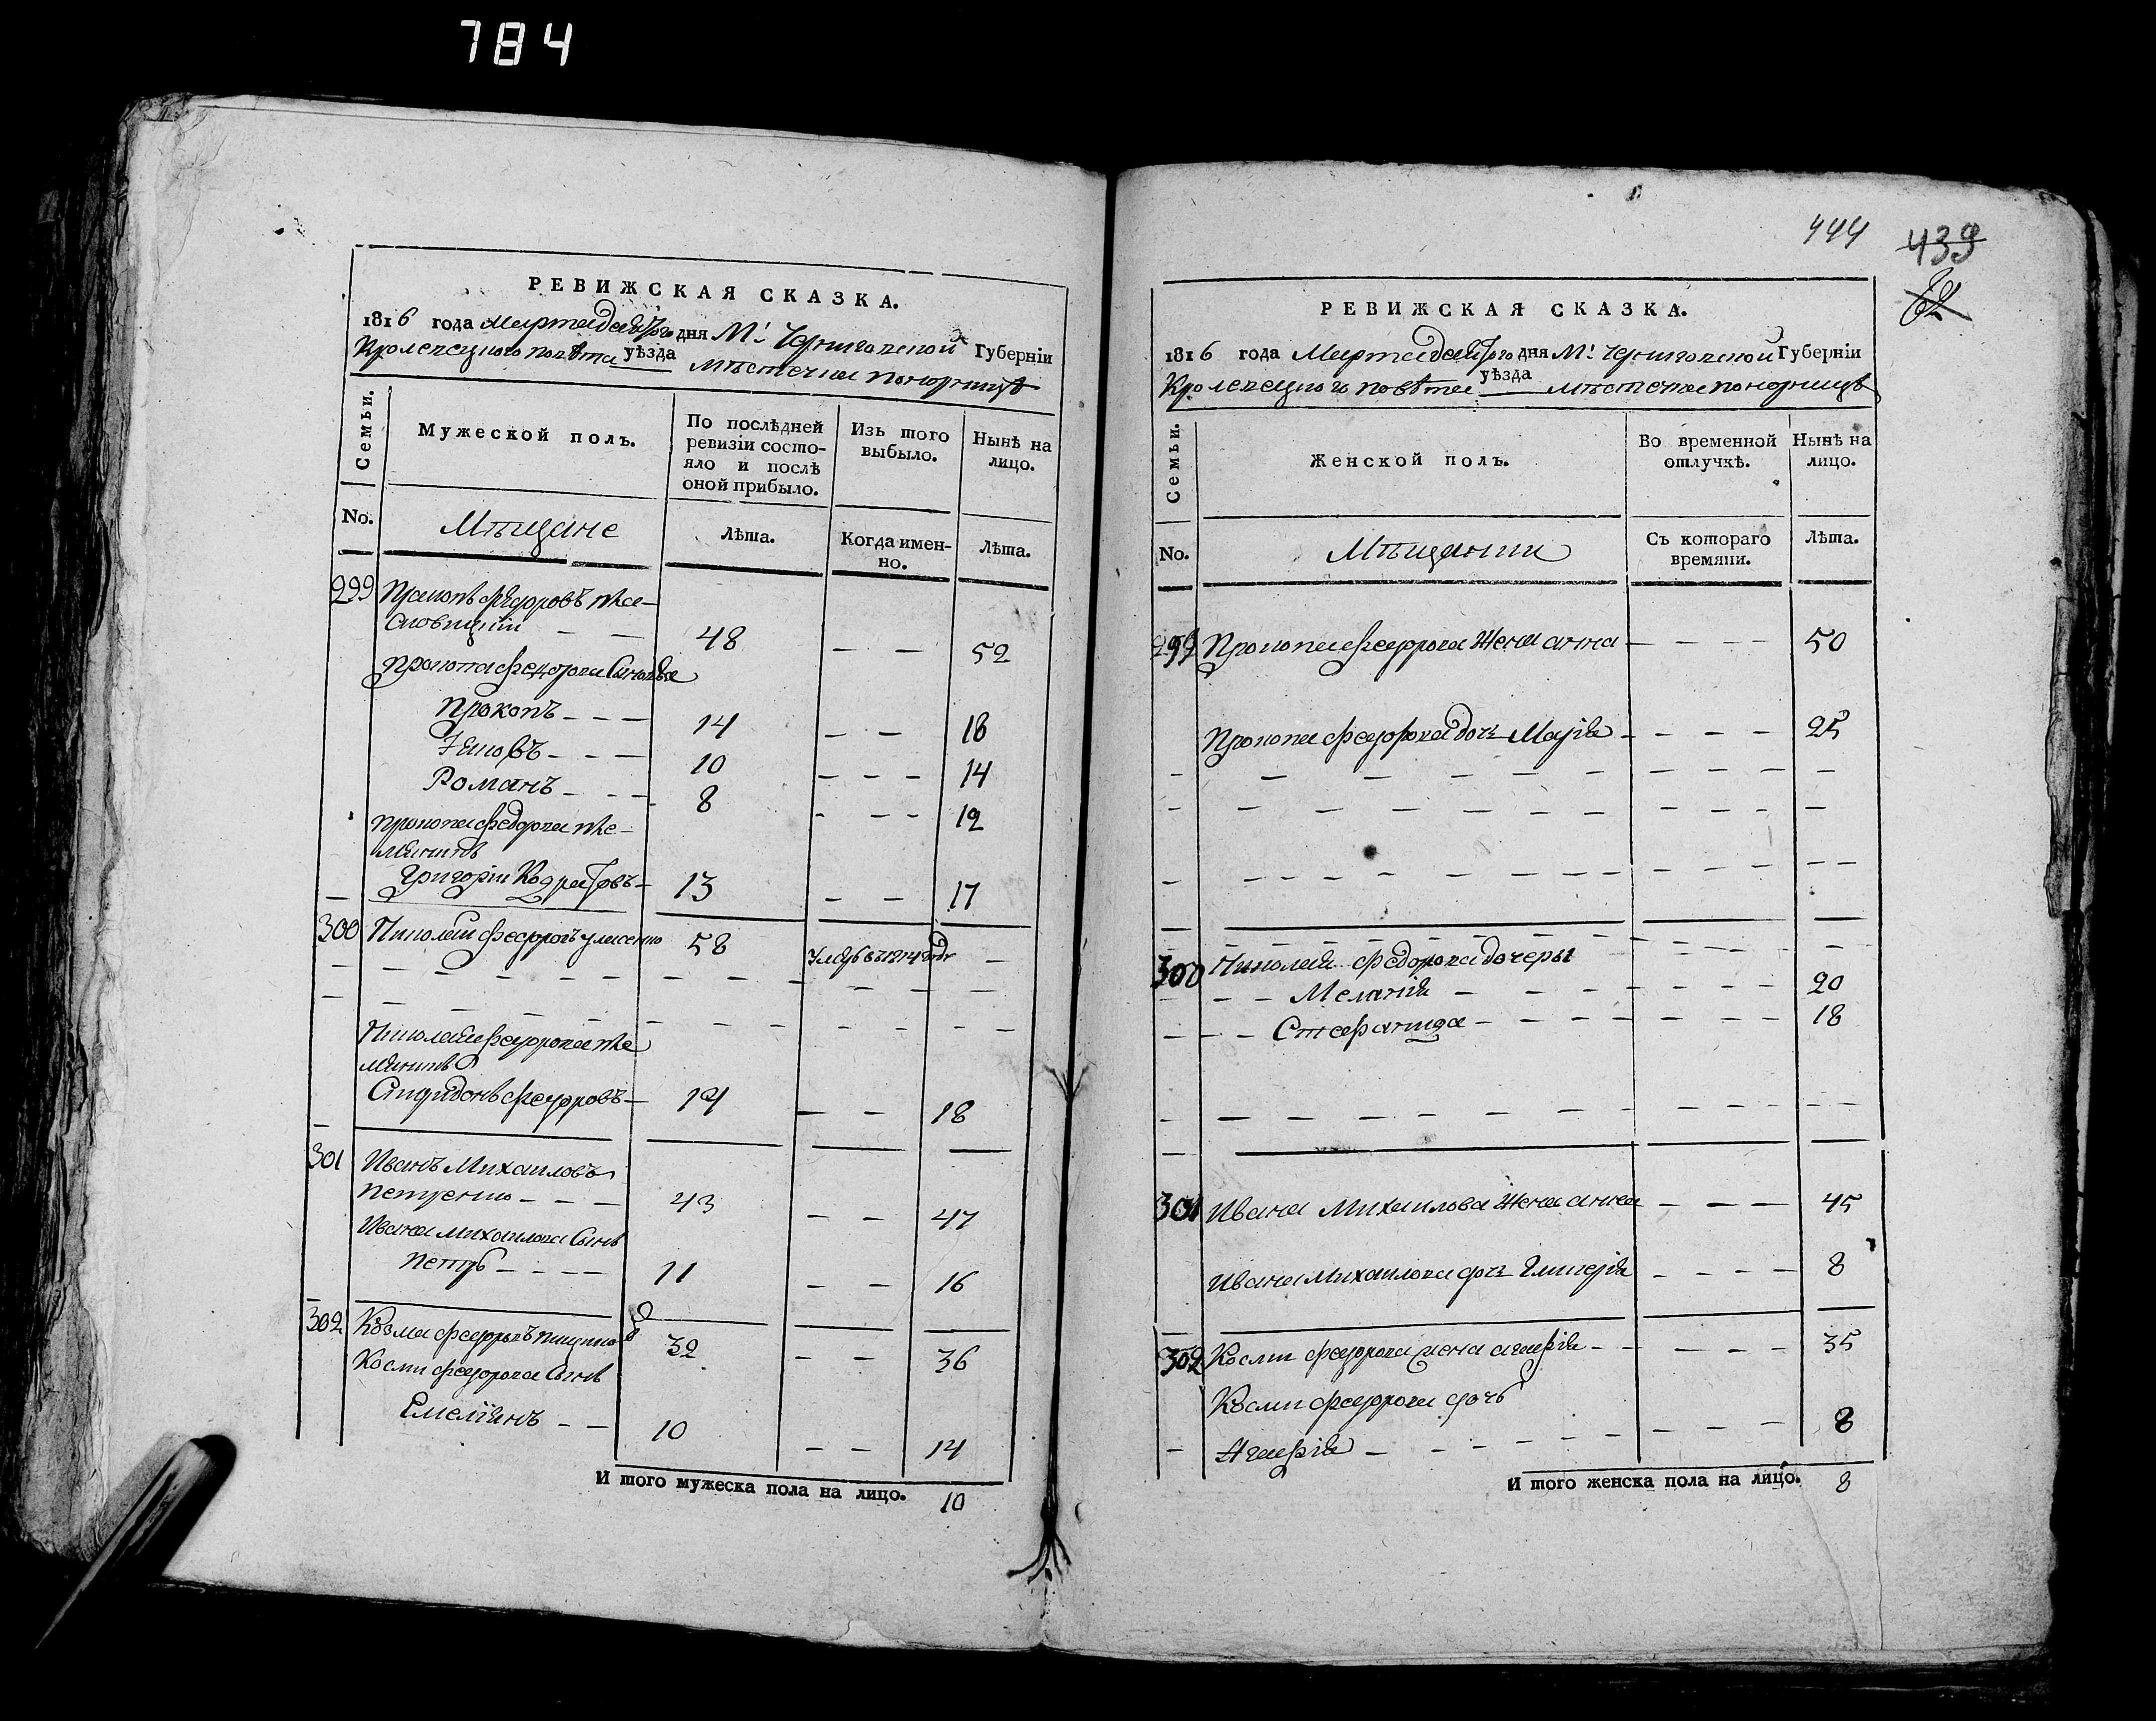 784
РЕВИЖСКАЯ СКАЗКА.
1816 года Марта дня М: Черниговской Губерніи
Кролевецкого повѣта уѣзда мѣстечка Понорницѣ
Семьи.
Мужеской полъ.
По послѣдней ревизіи состо-
яло и послѣ
оной прибыло.
Изъ того
выбыло.
Нынѣ на
лицо.
No.
Мѣщане
Лѣта.
Когда имен-
но.
Лѣта.
299 Прокопъ Федоровъ
48 — — 52
Прокопа Федорова Сыновья
Прокопъ — — — 14 — — 18
— — — 10 — — — 14
Романъ — — — 8 - — - - 12
Прокопа Федорова пле-
мянникъ
Григорій — 13 — — 17
300 Николай Федоровъ 58 —
Николая Федорова пле
мянникъ
Спиридонъ Федоровъ — 14 — — 18
301 Иванъ Михаиловъ
Петренко — — — 43 — — 47
Ивана Михаилова Сынъ
Петръ — - — — 11 — — 16
302 Козма Федоровъ 32 — — 36
Косми Федорова Сынъ
Емеліянъ — — 10 — — 14
И того мужеска пола на лицо. 10
444 439
РЕВИЖСКАЯ СКАЗКА.
1816 года Марта дня М: Черниговской Губерніи
Кролевецкого повѣта уѣзда — мѣстечка Понорницѣ
Семьи.
Женской полъ.
Во временной
отлучкѣ.
Нынѣ на
лицо.
No.
Мѣщанки
Съ котораго
времяни.
Лѣта.
299 Прокопа Федорова Жена Анна — — — — 50
Прокопа Федорова дочь Марія — — — — 25
300 Николая Федорова дочеры
— — Меланія — — — — 20
— — Стефанида — — — — 18
301 Ивана Михаилова Жена Анна — — — 45
Ивана Михаилова дочь — — — — 8
302 Косми Федорова жена Агафія — — — — 35
Косми Федорова дочь
Агафія — — — — 8
И того женска пола на лицо. 8